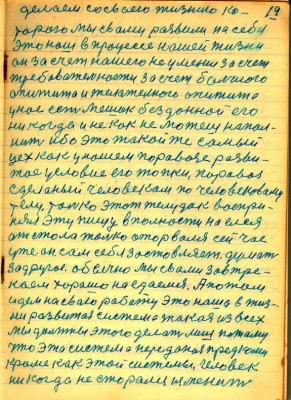 19
делаем со своего жизнию ко-
торого мы с вами развили на себу
Это наш в процессе нашей жизни
он за счет нашего не умения за счет
требовательности за счет болшого
апитита и текательного апитита
у нас есть мешок бездонной его
никогда и не как неможеш напол-
нит ибо это такой же самый
цех как у нашем паравозе разви-
тое условие его топки, паравоз
сделаный человекам по человековому
телу, только этот желудак воспри-
нял эту пищу вполности наелся
от стола только оторвался сейчас
уже он сам себя заставляет думат
за другое. обечно мы с вами завтра-
каем хорошо наедаемся. А потом
идем на сваю работу Это наша в жиз-
ни развитая система такая из всех
мы должны этого делат потаму
что эта система передоная предкому
кроме как этой системы, человек
никогда не старался изменит